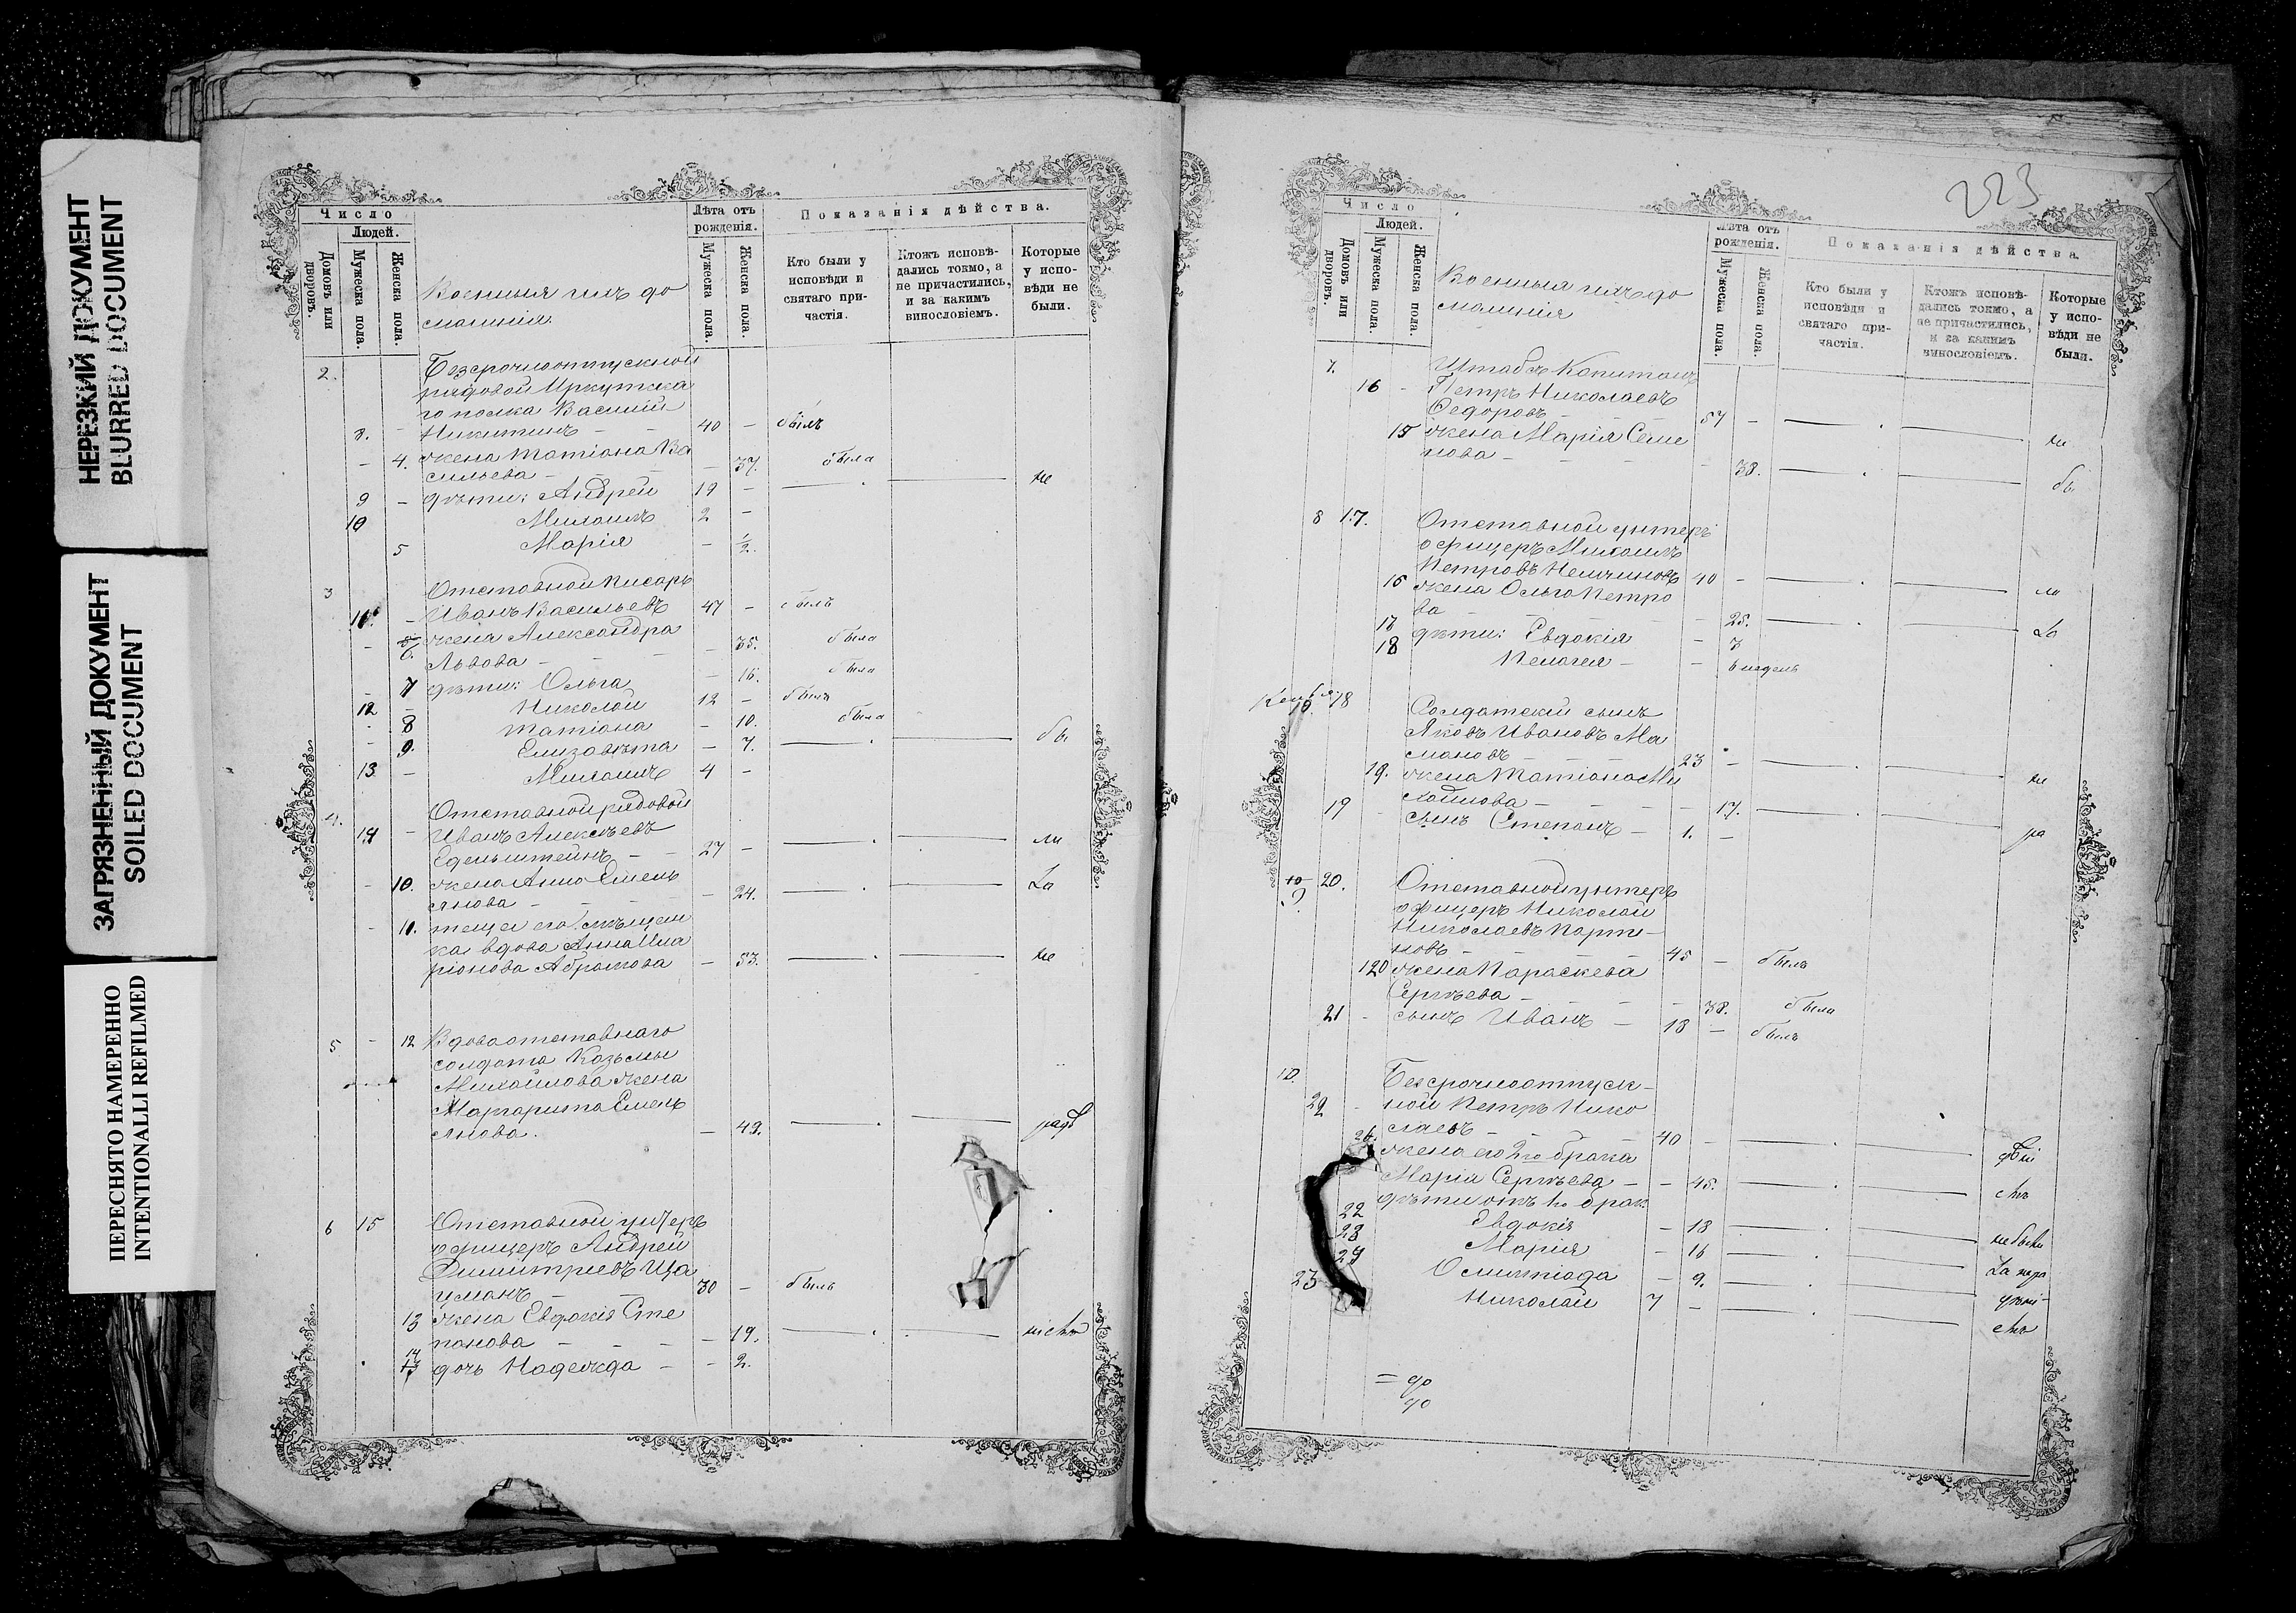 НЕРЕЗКИЙ ДОКУМЕНТ
BLURRED DOCUMENT
ЗАГРЯЗНЕННЫЙ ДОКУМЕНТ
SOILED DOCUMENT
ПЕРЕСНЯТО НАМЕРЕННО
INTENTIONALLI REFILMED
Число
Людей.
Домовъ или дворовъ.
Мужеска пола.
Женска пола.
Военныя ихъ до
машнія.
Лѣта отъ рожденія.
Мужеска пола.
Женска пола.
Показанія дѣйства.
Кто были у исповѣди и святаго причастія.
Ктожъ исповѣдались токмо, а не причастились, и за какимъ винословіемъ.
Которые у исповѣди не были.
2. Безсрочноотпускной
рядовой Иркутска
го полка Василій
8. - Никитинъ - - 40 - былъ
- 4. жена Татіана Ва
сильева - - - 37. была
9 - дѣти: Андрей 19 - не
10 Михаилъ 2 -
5 Марія - 1/2.
3 Отставной писарь
11. - Иванъ Васильевъ 47 - былъ
- 6. жена Александра
Львова - - - 35. была
- 7 дѣти: Ольга - 16. была
12 - Николай 12 - былъ
- 8 Татіана - 10. была
- 9. Елизавета - 7. бы
13. - Михаилъ 4 -
4. Отставной рядовой
14 - Иванъ Алексѣевъ
Едельштейнъ - - 27 - ли
- 10. жена Анна Емель
янова - - - 24. La
- 11. теща его мѣщан
ка вдова Анна Ила
ріонова Абрамова - 53. не
5 - 12 Вдова отставнаго
солдата Козьмы
Михайлова жена
Маргарита Емель
янова. - 49. радѣ
6 15 Отставной унтеръ
офицеръ Андрей
Димитріевъ Ца
уманъ - - 30 - былъ
13 жена Евдокія Сте
панова - - - 19.
14 дочь Надежда - - 2.
223
Число
Людей.
Домовъ или дворовъ.
Мужеска пола.
Женска пола.
Военныя ихъ до
машнія
Лѣта отъ рожденія.
Мужеска пола.
Женска пола.
Показанія дѣйства.
Кто были у исповѣди и святаго причастія.
Ктожъ исповѣдались токмо, а не причастились, и за какимъ винословіемъ.
Которые у исповѣди не были.
7. Штабсъ Капитанъ
16 - Петръ Николаевъ
Ѳедоровъ - - 57 - не
15 жена Марія Семе
нова - - - - 38. бы
8 17. Отставной унтеръ
офицеръ Михаилъ
Петровъ Немчиновъ 40 - ли
16 жена Ольга Петро
ва - - - 25. La
17 дѣти: Евдокія - 3
18 Пелагея - - 6 недель
18 Солдатскій сынъ
Яковъ Ивановъ Ма
мановъ - - 23 - не
19. жена Татіана Ми
хайлова - - - 17. ра
19 - сынъ Степанъ - 1. -
9 20. Отставной унтеръ
офицеръ Николай
Николаевъ Парти-
новъ - - 45 - былъ
20 жена Параскева
Сергѣева - - - 38. была
21 - сынъ Иванъ - 18 - былъ
10. Безсрочноотпуск-
22 - ной Петръ Нико
лаевъ - - 40 -
21. жена его 2го брака
Марія Сергѣева - - 45.
дѣти отъ 1го брак.
22 Евдокія - 18 не были
23 Марія - 16
24 Олимпіада - 9.
23 Николай 7 -
= 90
90